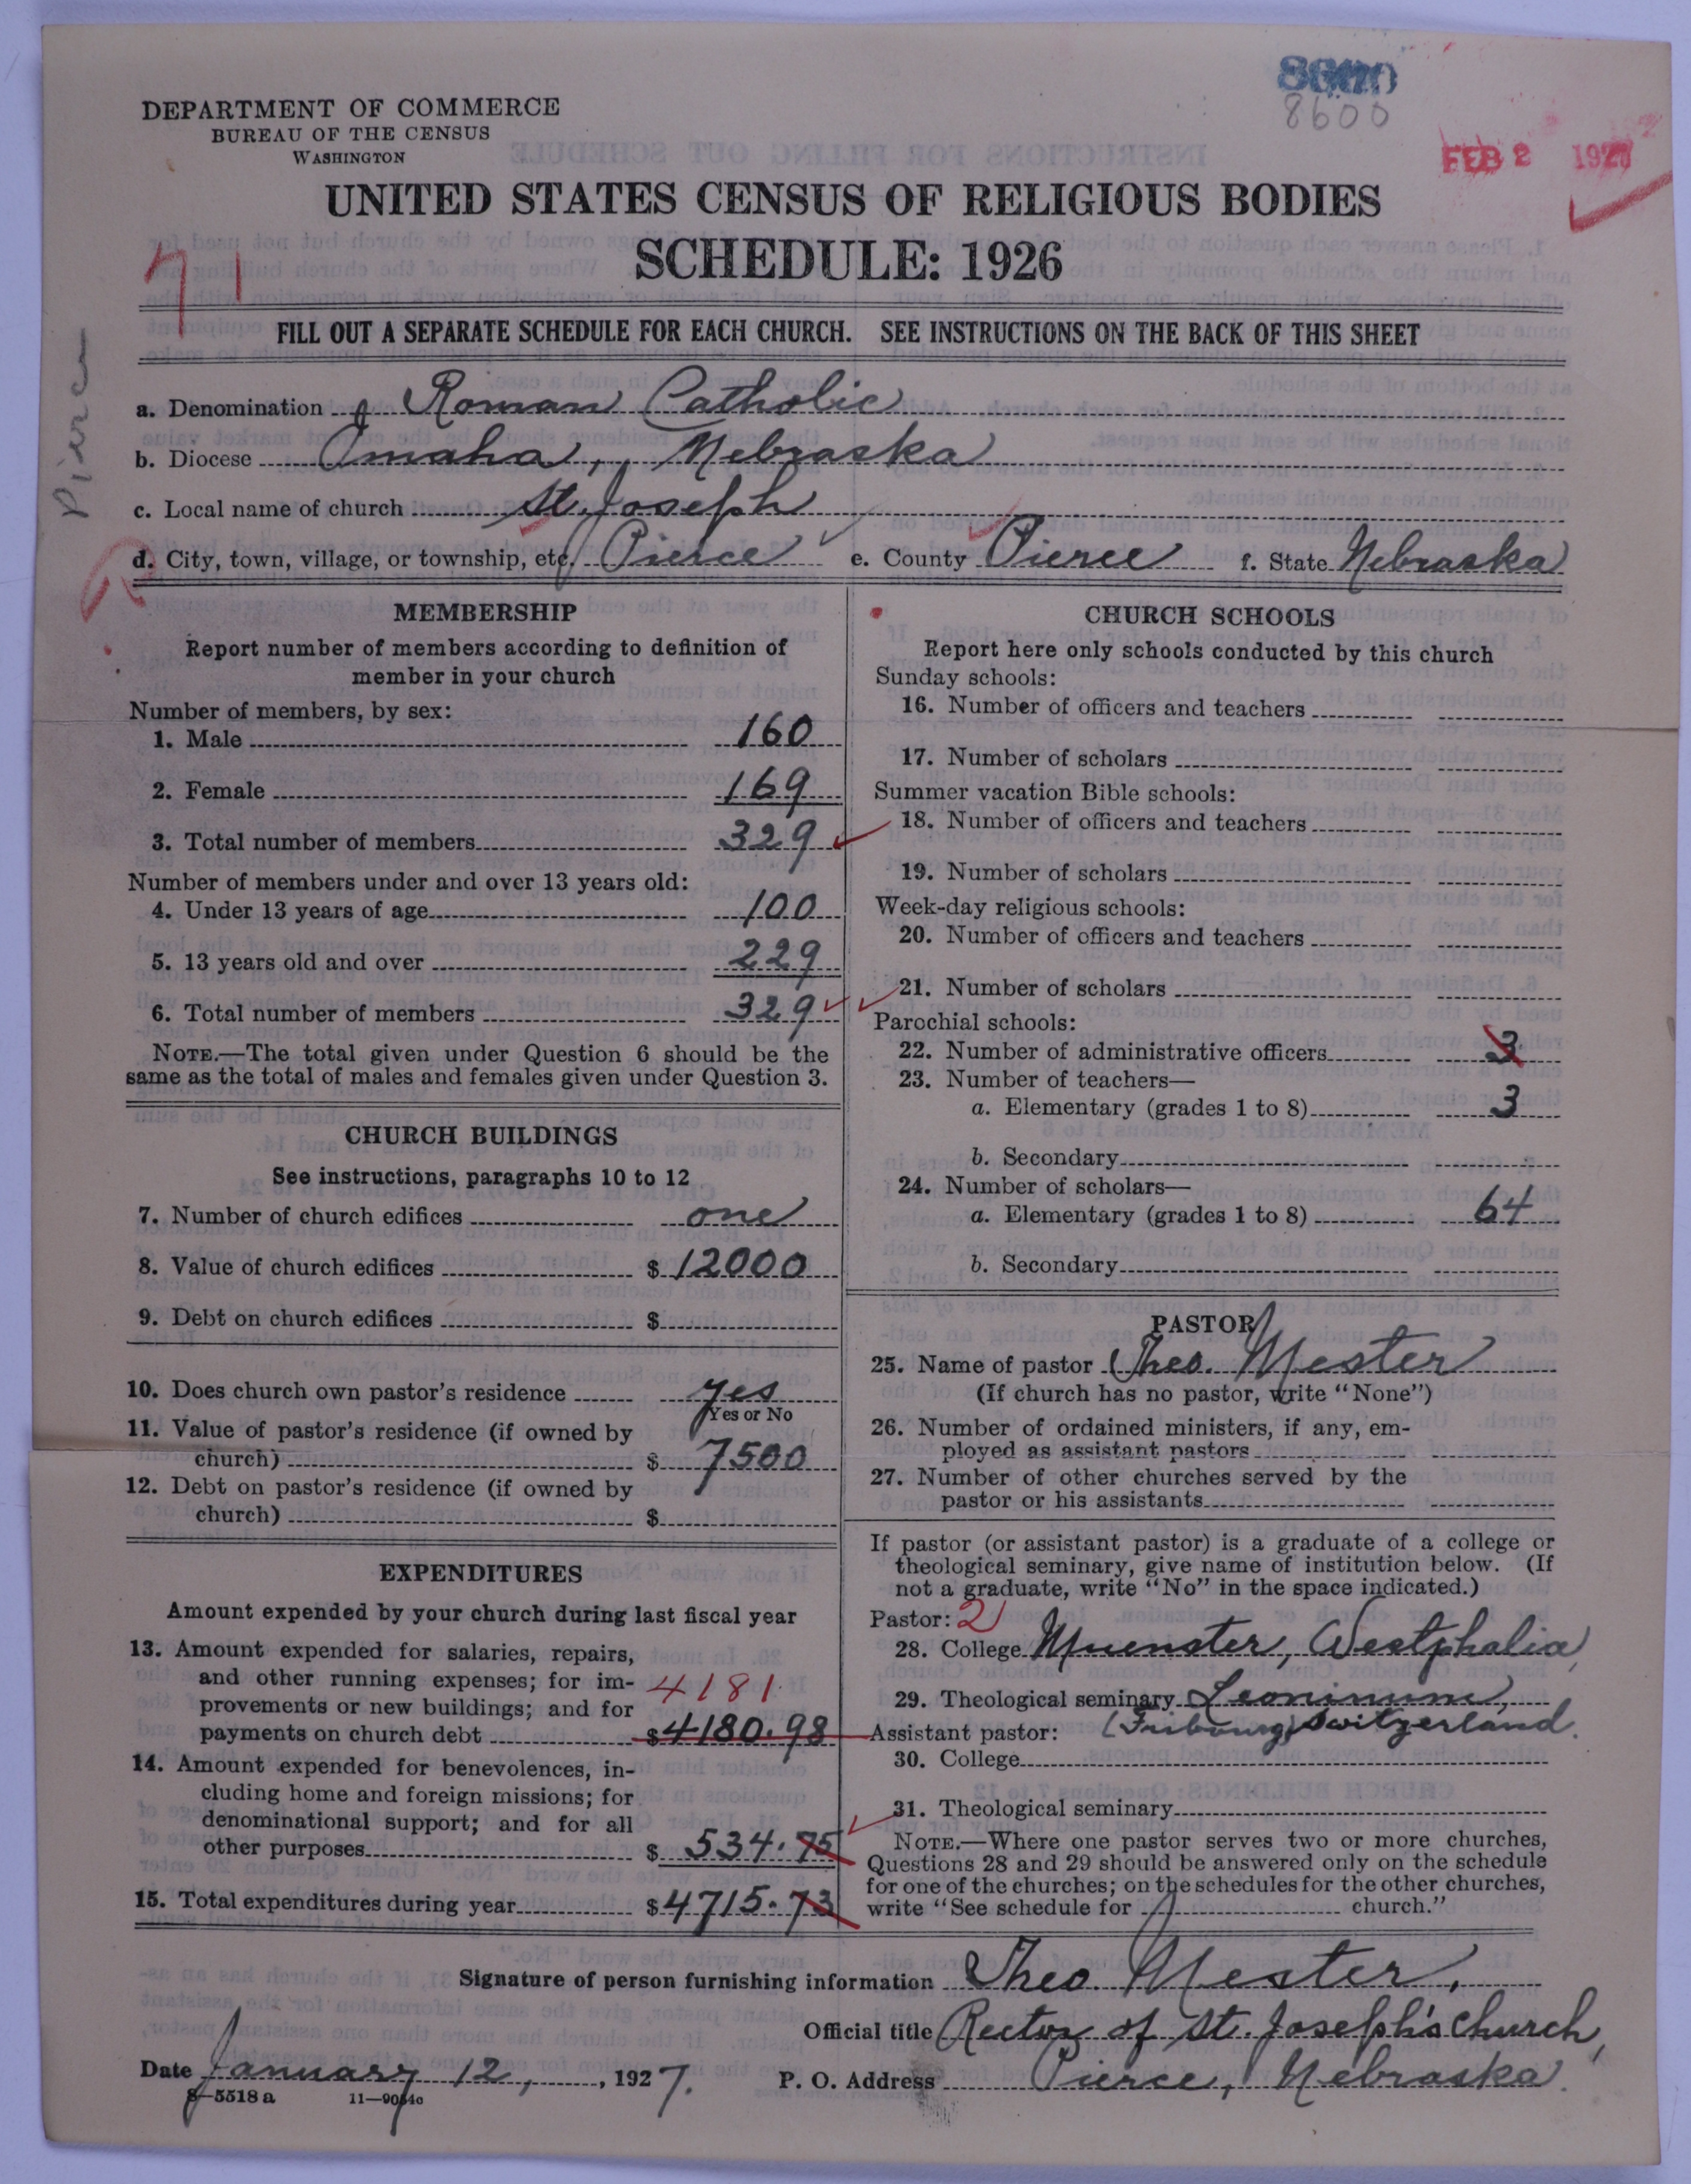 8600
DEPARTMENT OF COMMERCE
BUREAU OF THE CENSUS
WASHINGTON
FEB 2 1927
UNITED STATES CENSUS OF RELIGIOUS BODIES
SCHEDULE: 1926
71
Pierce
FILL OUT A SEPARATE SCHEDULE FOR EACH CHURCH. SEE INSTRUCTIONS ON THE BACK OF THIS SHEET
a. Denomination Roman Catholic
b. Diocese Omaha, Nebraska
c. Local name of church St. Joseph
d. City, town, village, or township, etc. Pierce e. County Pierce f. State Nebraska
MEMBERSHIP
Report number of members according to definition of
member in your church
Number of members, by sex:
1. Male 160
2. Female 169
3. Total number of members 329
Number of members under and over 13 years old:
4. Under 13 years of age 100
5. 13 years old and over 229
6. Total number of members 329
NOTE.—The total given under Question 6 should be the
same as the total of males and females given under Question 3.
CHURCH BUILDINGS
See instructions, paragraphs 10 to 12
7. Number of church edifices one
8. Value of church edifices $ 12000
9. Debt on church edifices $
10. Does church own pastor's residence yes
Yes or No
11. Value of pastor's residence (if owned by
church) $ 7500
12. Debt on pastor's residence (if owned by
church) $
EXPENDITURES
Amount expended by your church during last fiscal year
13. Amount expended for salaries, repairs,
and other running expenses; for im- 4181
provements or new buildings; and for
payments on church debt $ 4180.98
14. Amount expended for benevolences, in-
cluding home and foreign missions; for
denominational support; and for all
other purposes $ 534.75
15. Total expenditures during year $ 4715.73
CHURCH SCHOOLS
Report here only schools conducted by this church
Sunday schools:
16. Number of officers and teachers
17. Number of scholars
Summer vacation Bible schools:
18. Number of officers and teachers
19. Number of scholars
Week-day religious schools:
20. Number of officers and teachers
21. Number of scholars
Parochial schools:
22. Number of administrative officers 3
23. Number of teachers—
a. Elementary (grades 1 to 8) 3
b. Secondary
24. Number of scholars—
a. Elementary (grades 1 to 8) 64
b. Secondary
PASTOR
25. Name of pastor Theo. Mester
(If church has no pastor, write "None")
26. Number of ordained ministers, if any, em-
ployed as assistant pastors
27. Number of other churches served by the
pastor or his assistants
If pastor (or assistant pastor) is a graduate of a college or
theological seminary, give name of institution below. (If
not a graduate, write "No" in the space indicated.)
Pastor: 2
28. College Muenster, Westphalia,
29. Theological seminary Leoninum,
Assistant pastor: (Fribourg) Switzerland.
30. College
31. Theological seminary
NOTE.—Where one pastor serves two or more churches,
Questions 28 and 29 should be answered only on the schedule
for one of the churches; on the schedules for the other churches,
write "See schedule for church."
Signature of person furnishing information Theo. Mester,
Official title Rector of St. Joseph's church,
Date January 12, 1927. P. O. Address Pierce, Nebraska.
8—5518 a 11—9054c